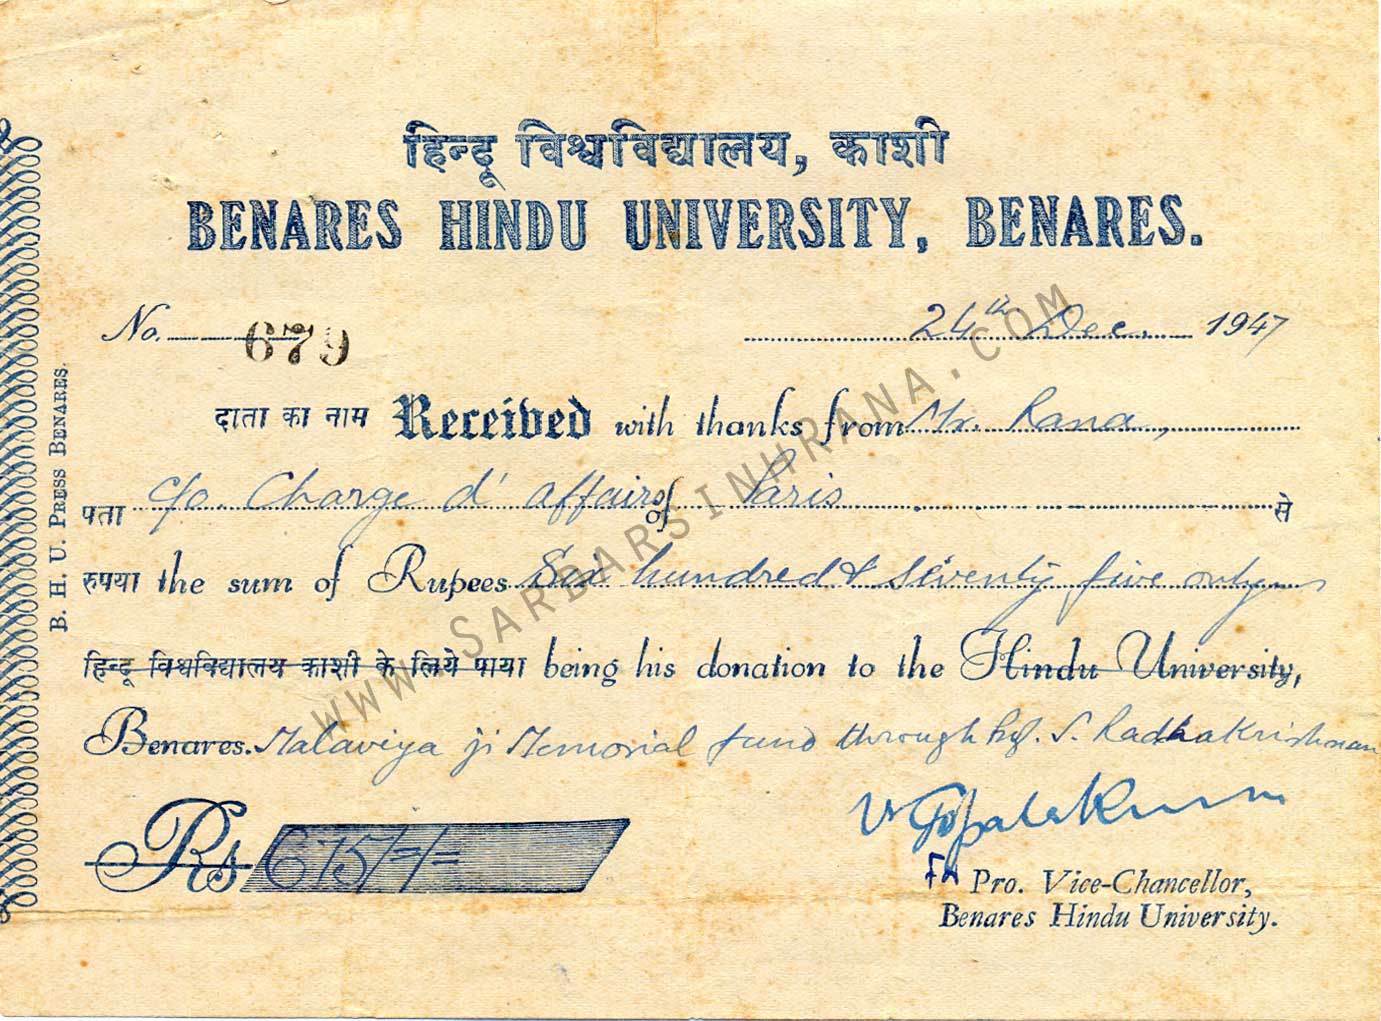 हिन्दू विश्वविद्यालय, काशी
BENARES HINDU UNIVERSITY, BENARES.
No. 679
24th Dec. 1947
दाता का नाम Received with thanks from Mr. Rana,
पता c/o. Charge d' affairs of of Paris से
रुपया the sum of Rupees Six hundred & seventy five only
हिन्दू विश्वविद्यालय काशी के लिये पाया being his donation to the Hindu University,
Benares. Malaviya ji Memorial fund through Prof. S. Radhakrishnan
Rs 675/-/-
V Gopalakrisnn
For Pro. Vice-Chancellor,
Benares Hindu University.
B. H. U. PRESS BENARES.
WWW.SARDARSINHRANA.COM